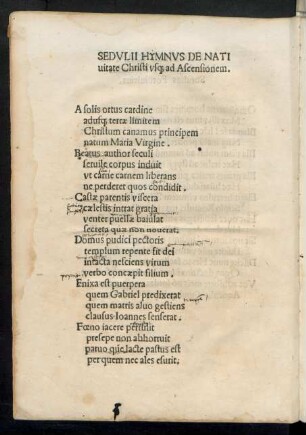 SEDVLII HYMNVS DE NATI
uitate Christi vsq; ad Ascensionem.
A solis ortus cardine
adusq; terræ limitem
Christum canamus principem
natum Maria Virgine.
Beatus author seculi
seruile corpus induit
vt carne carnem liberans
ne perderet quos condidit.
Castæ parentis viscera
cælestis intrat gratia
venter puellæ baiulat
secreta quæ non nouerat.
Domus pudici pectoris
templum repente fit dei
intacta nesciens virum
verbo concæpit filium.
Enixa est puerpera
quem Gabriel predixerat
quem matris aluo gestiens
clausus Ioannes senserat.
Fœno iacere pertulit
presepe non abhorruit
paruo quæ lacte pastus est
per quem nec ales esurit.